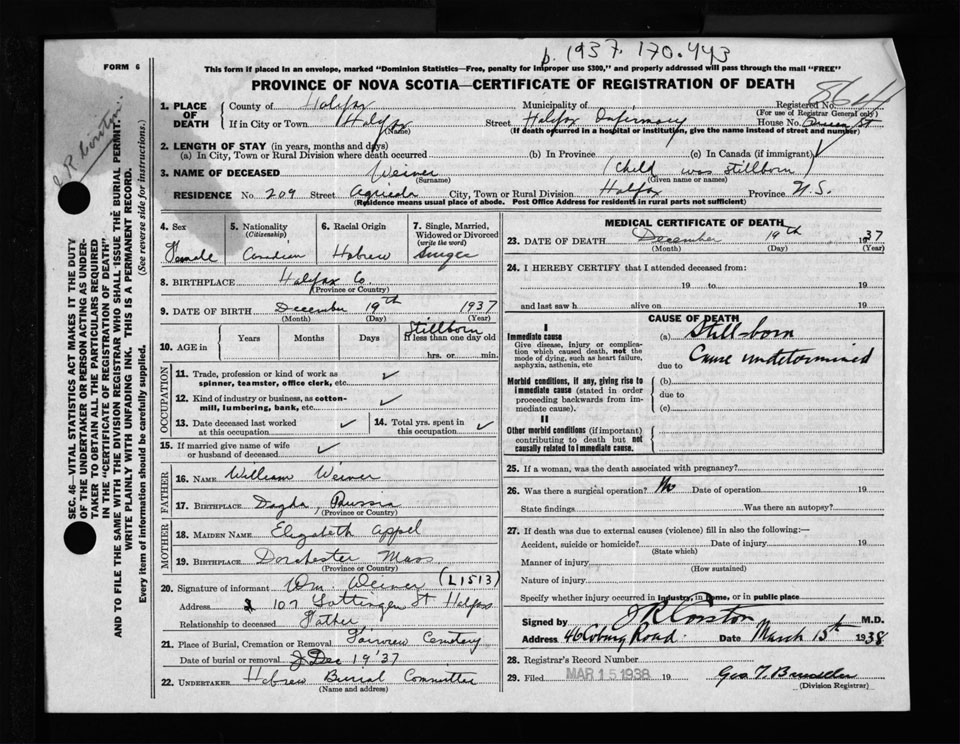 b. 1937. 170.443
864
FORM 6
This form if placed in an envelope, marked "Dominion Statistics—Free, penalty for improper use $300," and properly addressed will pass through the mail "FREE"
PROVINCE OF NOVA SCOTIA—CERTIFICATE OF REGISTRATION OF DEATH
1. PLACE OF DEATH
County of Halifax Municipality of Registered No.
(For use of Registrar General only)
If in City or Town Halifax Street Halifax Infirmary House No. Queen St
(Name) (If death occurred in a hospital or institution, give the name instead of street and number)
2. LENGTH OF STAY (in years, months and days)
(a) In City, Town or Rural Division where death occurred (b) In Province (c) In Canada (if immigrant)
3. NAME OF DECEASED Weiner (Child was stillborn)
(Surname) (Given name or names)
RESIDENCE No. 209 Street Agricola City, Town or Rural Division Halifax Province N.S.
(Residence means usual place of abode. Post Office Address for residents in rural parts not sufficient)
4. Sex
Female
5. Nationality (Citizenship)
Canadian
6. Racial Origin
Hebrew
7. Single, Married, Widowed or Divorced (write the word)
Single
8. BIRTHPLACE Halifax Co.
(Province or Country)
9. DATE OF BIRTH December 19th 1937
(Month) (Day) (Year)
10. AGE in Years Months Days Stillborn
If less than one day old
hrs. or min.
OCCUPATION
11. Trade, profession or kind of work as spinner, teamster, office clerk, etc. ✓
12. Kind of industry or business, as cotton-mill, lumbering, bank, etc. ✓
13. Date deceased last worked at this occupation ✓ 14. Total yrs. spent in this occupation ✓
15. If married give name of wife or husband of deceased ✓
FATHER
16. NAME William Weiner
17. BIRTHPLACE Dagda, Russia
(Province or Country)
MOTHER
18. MAIDEN NAME Elizabeth Appel
19. BIRTHPLACE Dorchester Mass
(Province or Country)
20. Signature of informant Wm. Weiner (L1513)
Address 107 Gottingen St Halifax
Relationship to deceased Father
21. Place of Burial, Cremation or Removal Fairview Cemetery
Date of burial or removal Dec 19 '37
22. UNDERTAKER Hebrew Burial Committee
(Name and address)
MEDICAL CERTIFICATE OF DEATH
23. DATE OF DEATH December 19th 1937
(Month) (Day) (Year)
24. I HEREBY CERTIFY that I attended deceased from:
19 to 19
and last saw h alive on 19
CAUSE OF DEATH
I
Immediate cause (a) Still-born
Give disease, injury or complication which caused death, not the mode of dying, such as heart failure, asphyxia, asthenia, etc
Cause undetermined
due to
Morbid conditions, if any, giving rise to immediate cause (stated in order proceeding backwards from immediate cause).
(b)
due to
(c)
II
Other morbid conditions (if important) contributing to death but not causally related to immediate cause.
25. If a woman, was the death associated with pregnancy?
26. Was there a surgical operation? No Date of operation 19
State findings Was there an autopsy?
27. If death was due to external causes (violence) fill in also the following:—
Accident, suicide or homicide? Date of injury 19
(State which)
Manner of injury
(How sustained)
Nature of injury
Specify whether injury occurred in industry, in home, or in public place
Signed by J R Corston M.D.
Address 46 Coburg Road. Date March 15th 1938
28. Registrar's Record Number
29. Filed MAR 15 1938 19 Geo. T.
(Division Registrar)
J R Corston
SEC. 46—VITAL STATISTICS ACT MAKES IT THE DUTY
OF THE UNDERTAKER OR PERSON ACTING AS UNDER-
TAKER TO OBTAIN ALL THE PARTICULARS REQUIRED
IN THE "CERTIFICATE OF REGISTRATION OF DEATH"
AND TO FILE THE SAME WITH THE DIVISION REGISTRAR WHO SHALL ISSUE THE BURIAL PERMIT.
WRITE PLAINLY WITH UNFADING INK. THIS IS A PERMANENT RECORD.
Every item of information should be carefully supplied. (See reverse side for instructions.)